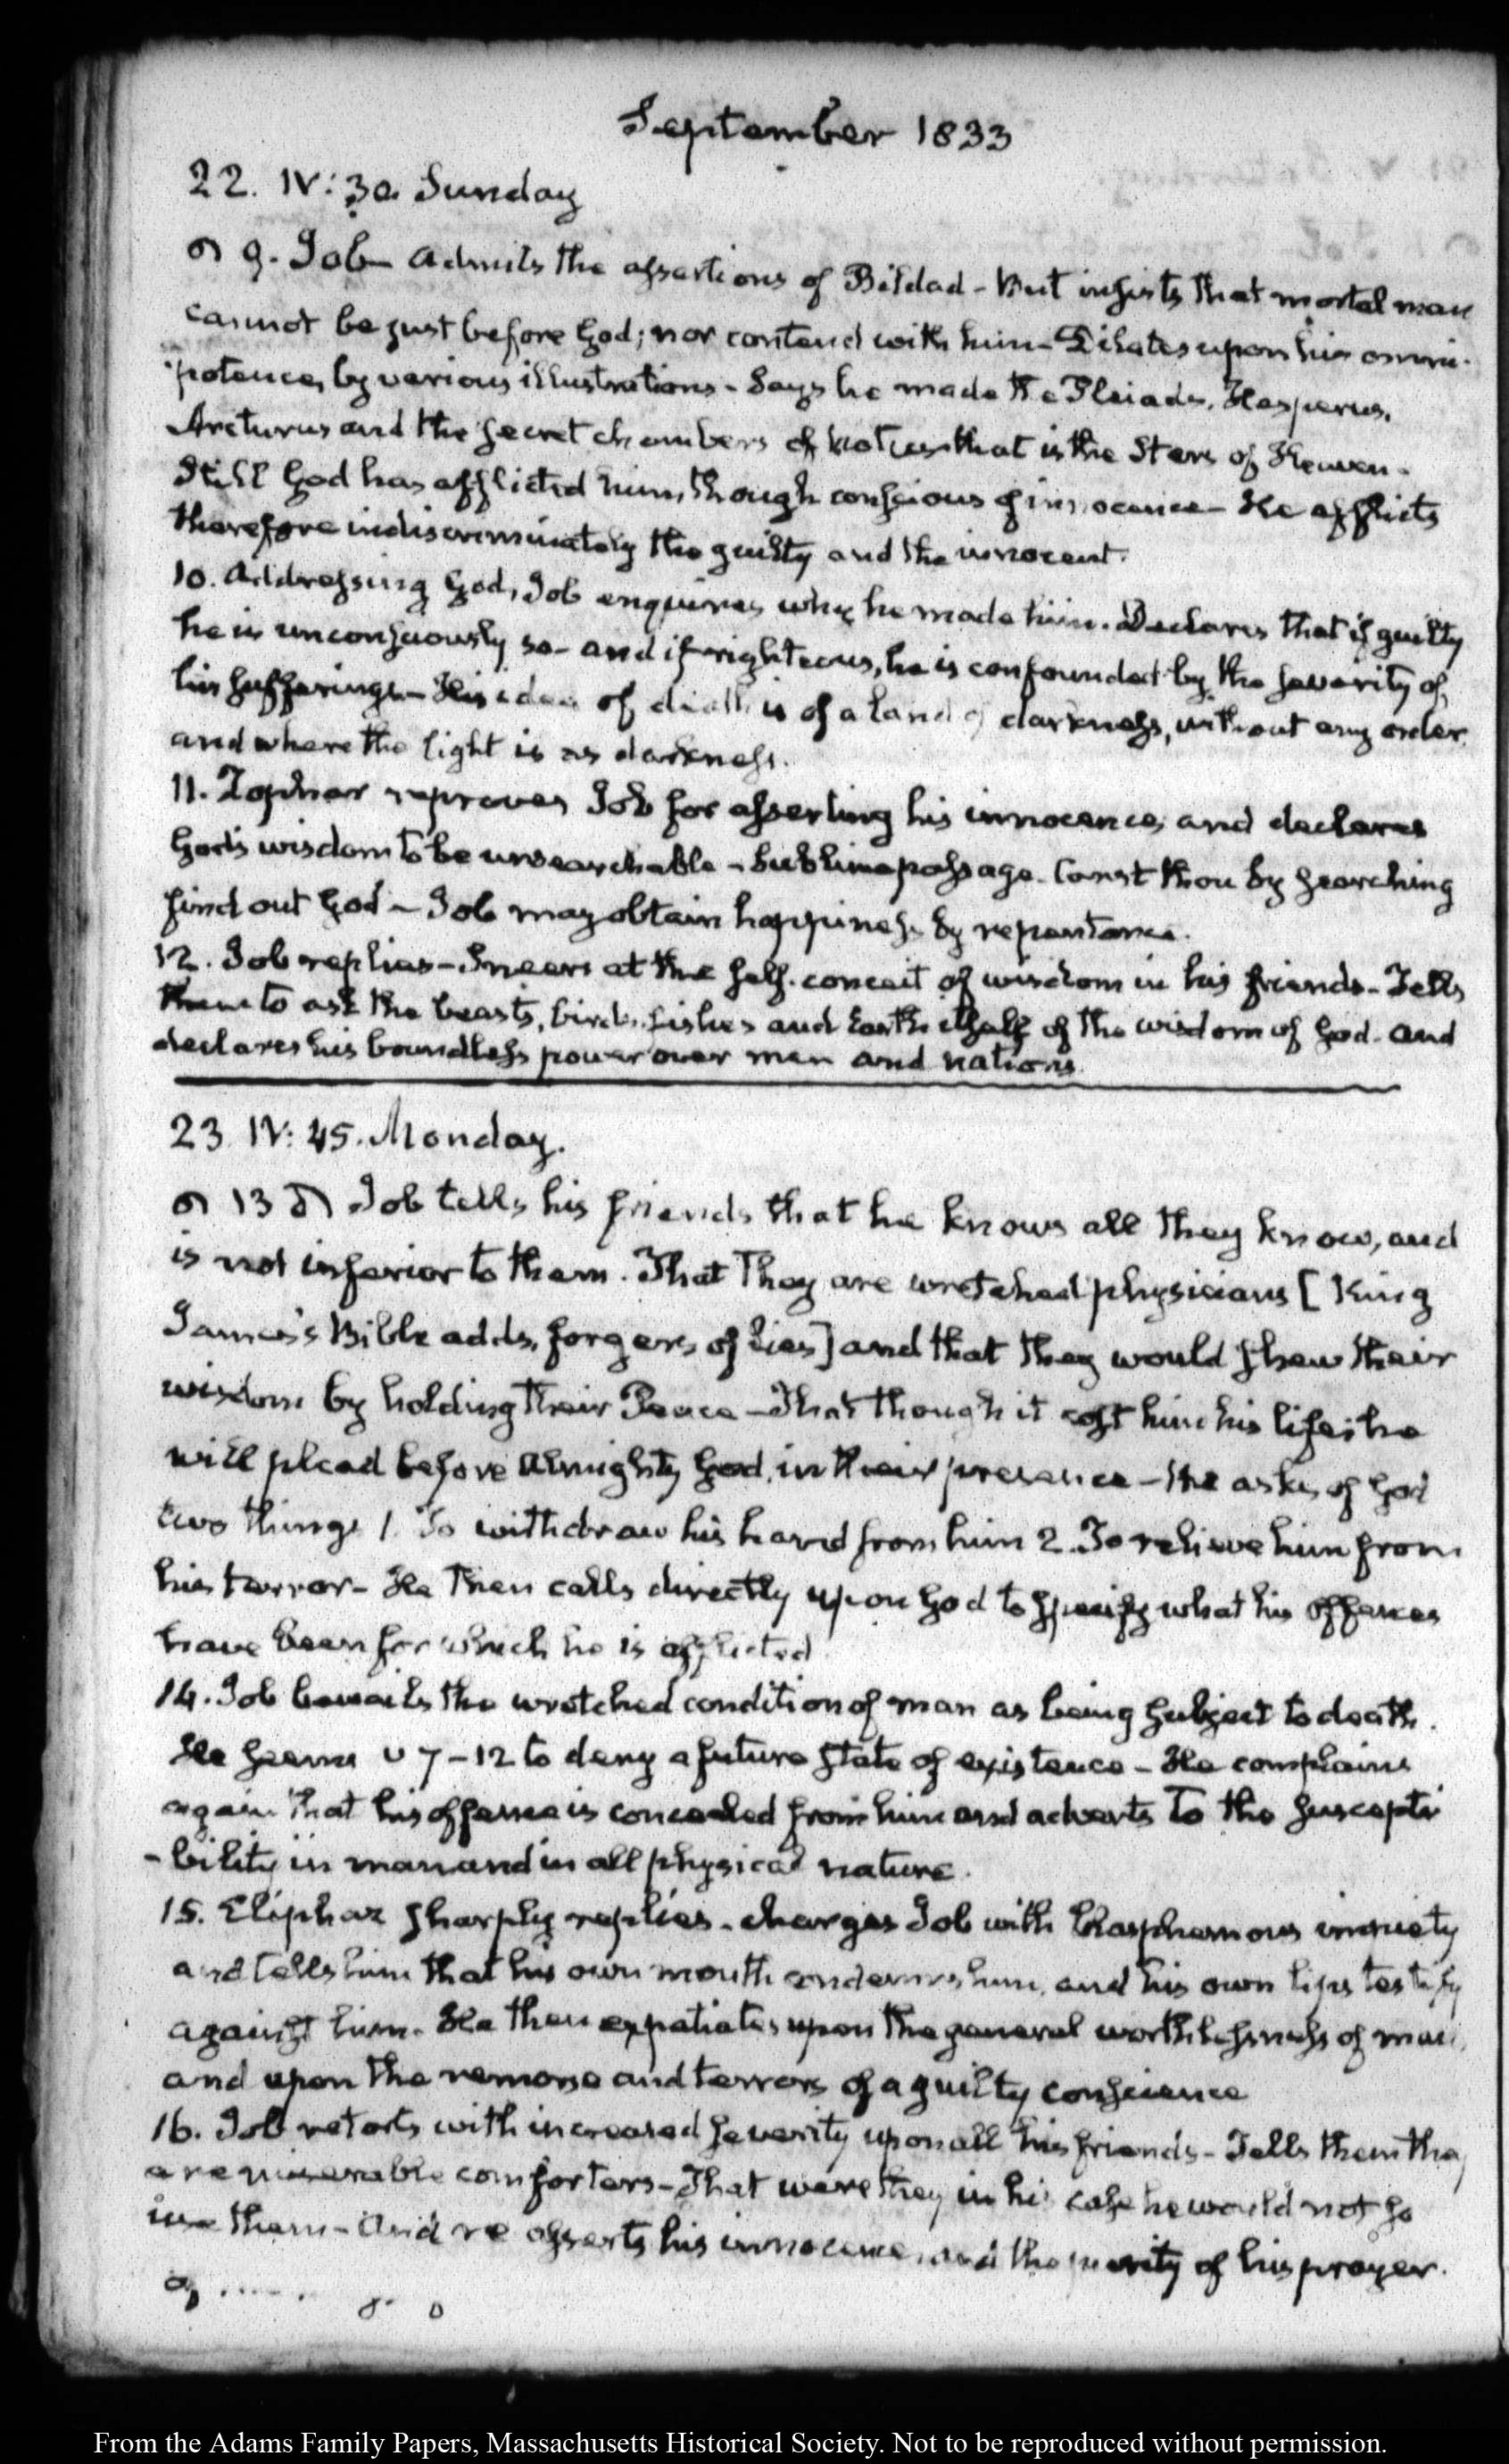 September 1833
22. IV: 30. Sunday
9. Job admits the assertions of Bildad - But insists that mortal man
cannot be just before God; nor contend with him - Dilates upon his omni-
potence, by various illustrations - Says he made the Pleiades, Hesperus,
Arcturus and the secret chambers of Notus that is the Stars of Heaven -
Still God has afflicted him, though conscious of innocence - He afflicts
therefore indiscriminately the guilty and the innocent.
10. Addressing God, Job enquires why he made him. Declares that if guilty
he is unconsciously so - and if righteous, he is confounded by the severity of
his sufferings - His idea of death is of a land of darkness, without any order
and where the light is as darkness.
11. Zophar reproves Job for asserting his innocence, and declares
God's wisdom to be unsearchable - Sublime passage. Canst thou by searching
find out God - Job may obtain happiness by repentance.
12. Job replies - Sneers at the self-conceit of wisdom in his friends - Tells
them to ask the beasts, birds, fishes and Earth itself of the wisdom of God - and
declares his boundless power over men and nations.
23. IV: 45. Monday.
13 Job tells his friends that he knows all they know, and
is not inferior to them. That They are wretched physicians [King
James's Bible adds, forgers of lies] and that they would shew their
wisdom by holding their Peace - That though it cost him his life, he
will plead before Almighty God, in their presence - He asks of God
two things 1. To withdraw his hand from him 2. To relieve him from
his terror - He Then calls directly upon God to specify what his offences
have been for which he is afflicted
14. Job bewails the wretched condition of man as being subject to death.
He seems v 7-12 to deny a future state of existence - He complains
again that his offence is concealed from him and adverts To the suscepti
-bility in man and in all physical nature.
15. Eliphaz sharply replies - charges Job with blasphemous impiety
and tells him that his own mouth condemns him, and his own lips testify
against him. He then expatiates upon the general worthlessness of man,
and upon the remorse and terrors of a guilty conscience
16. Job retorts with increased severity upon all his friends - Tells them they
are miserable comforters - That were they in his case he would not so
use them - And re asserts his innocence, and the purity of his prayer.
From the Adams Family Papers, Massachusetts Historical Society. Not to be reproduced without permission.